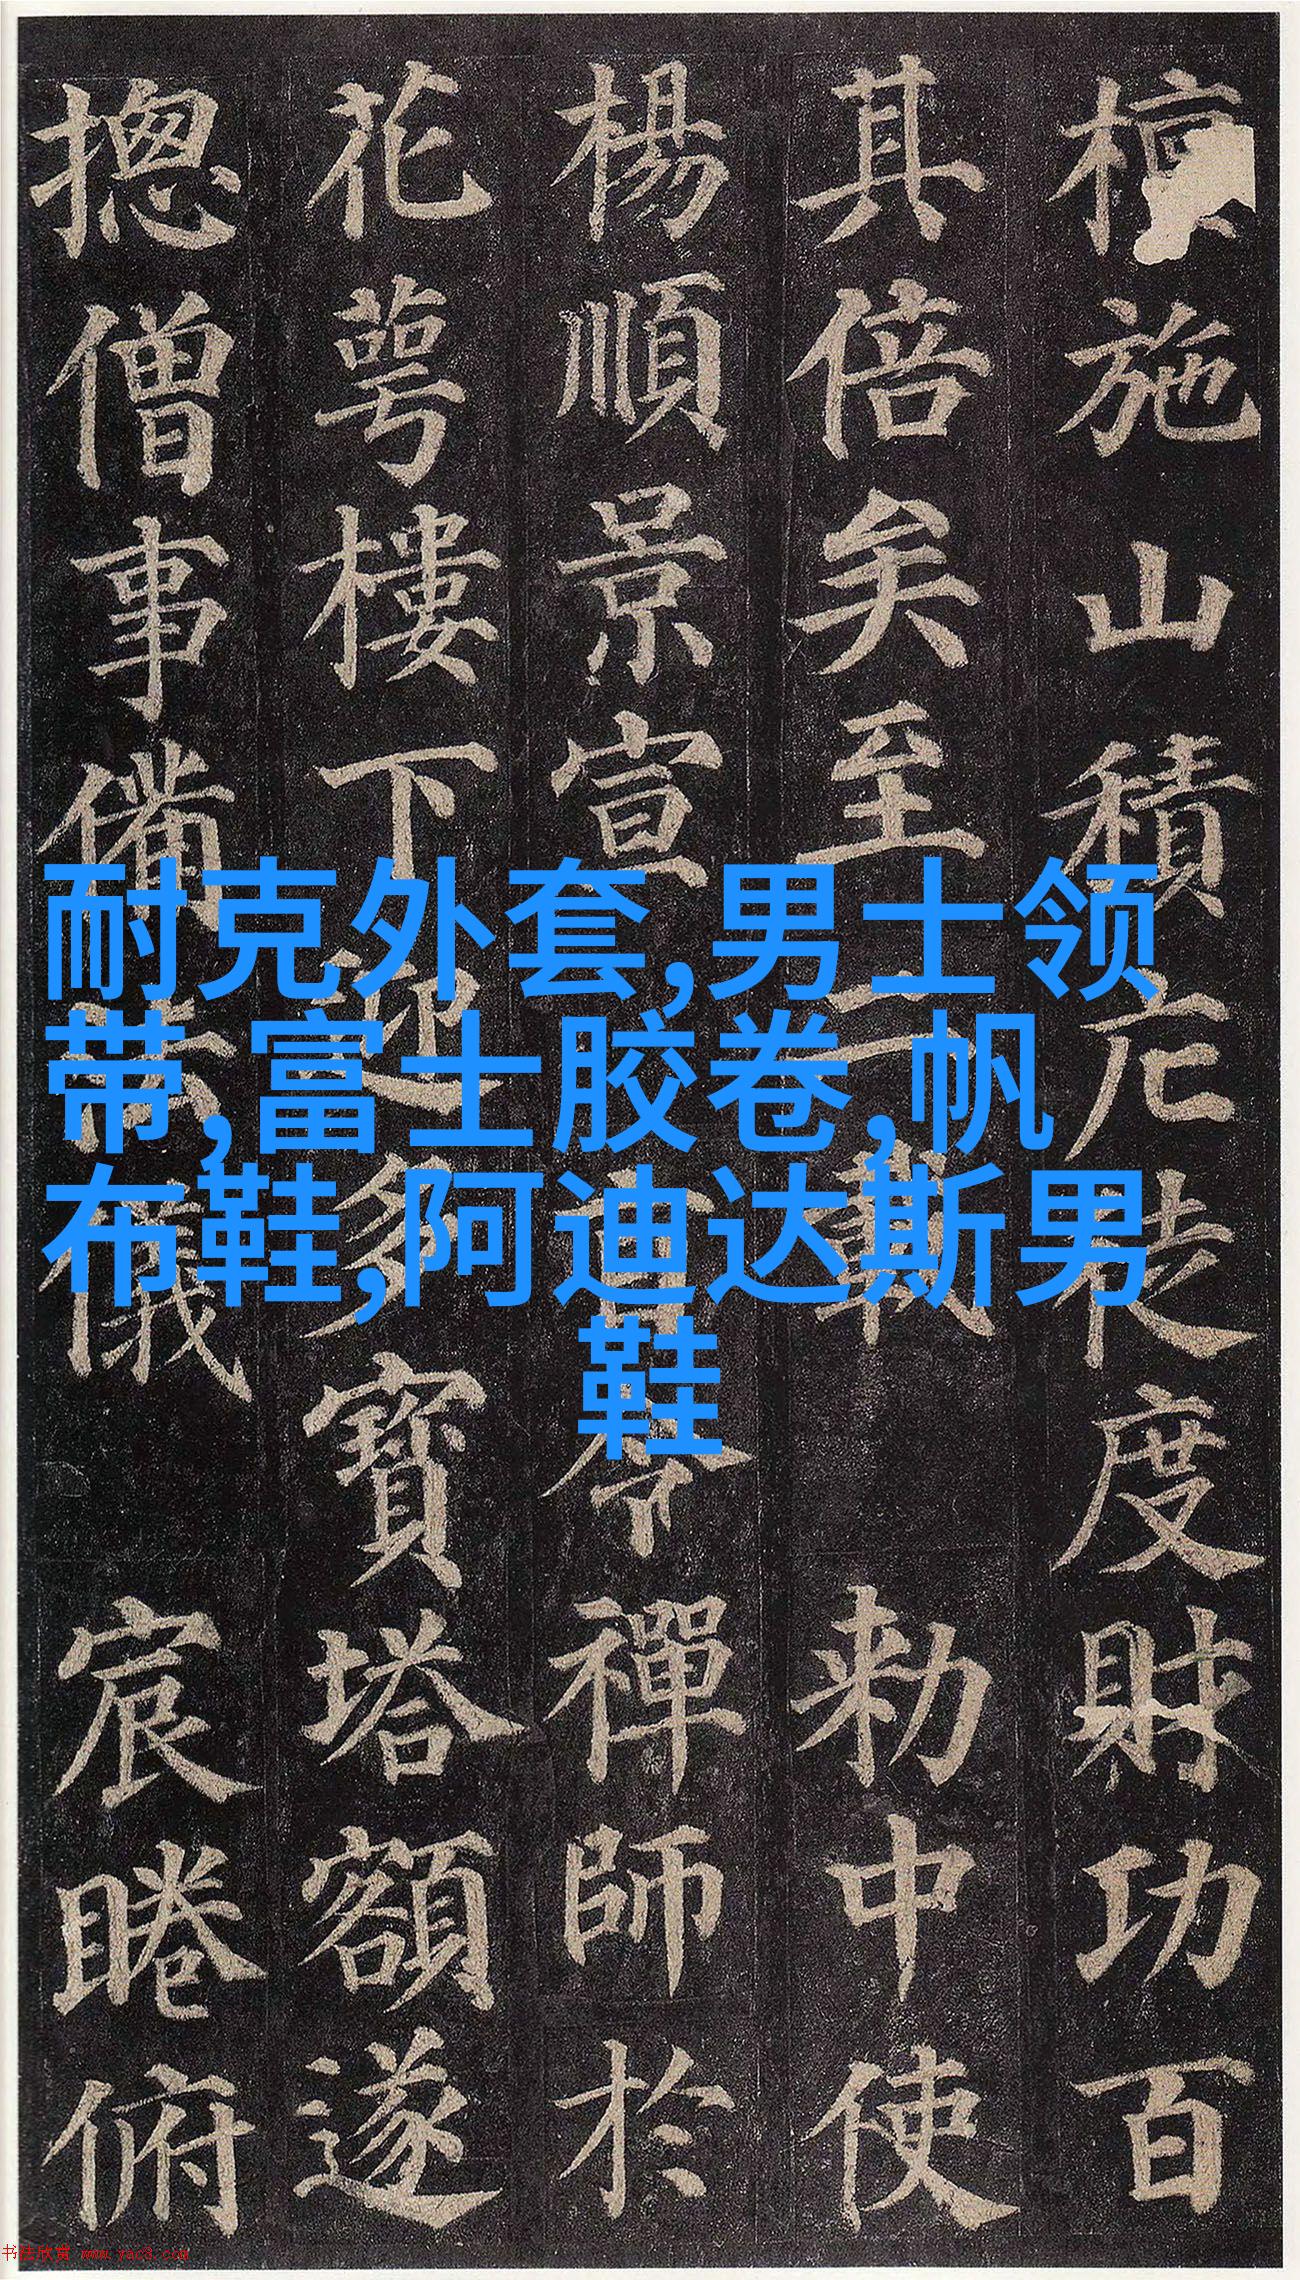 檀施山積庀徒度財功百
其倍矣至二載勑中使
楊順景宣旨令禪師於
花萼樓下迎多寶塔額遂
摠僧事備法儀宸睠俯
耐克外套,男士领
带,富士胶卷,帆
布鞋,阿迪达斯男
鞋
书法欣赏 www.yac8.com